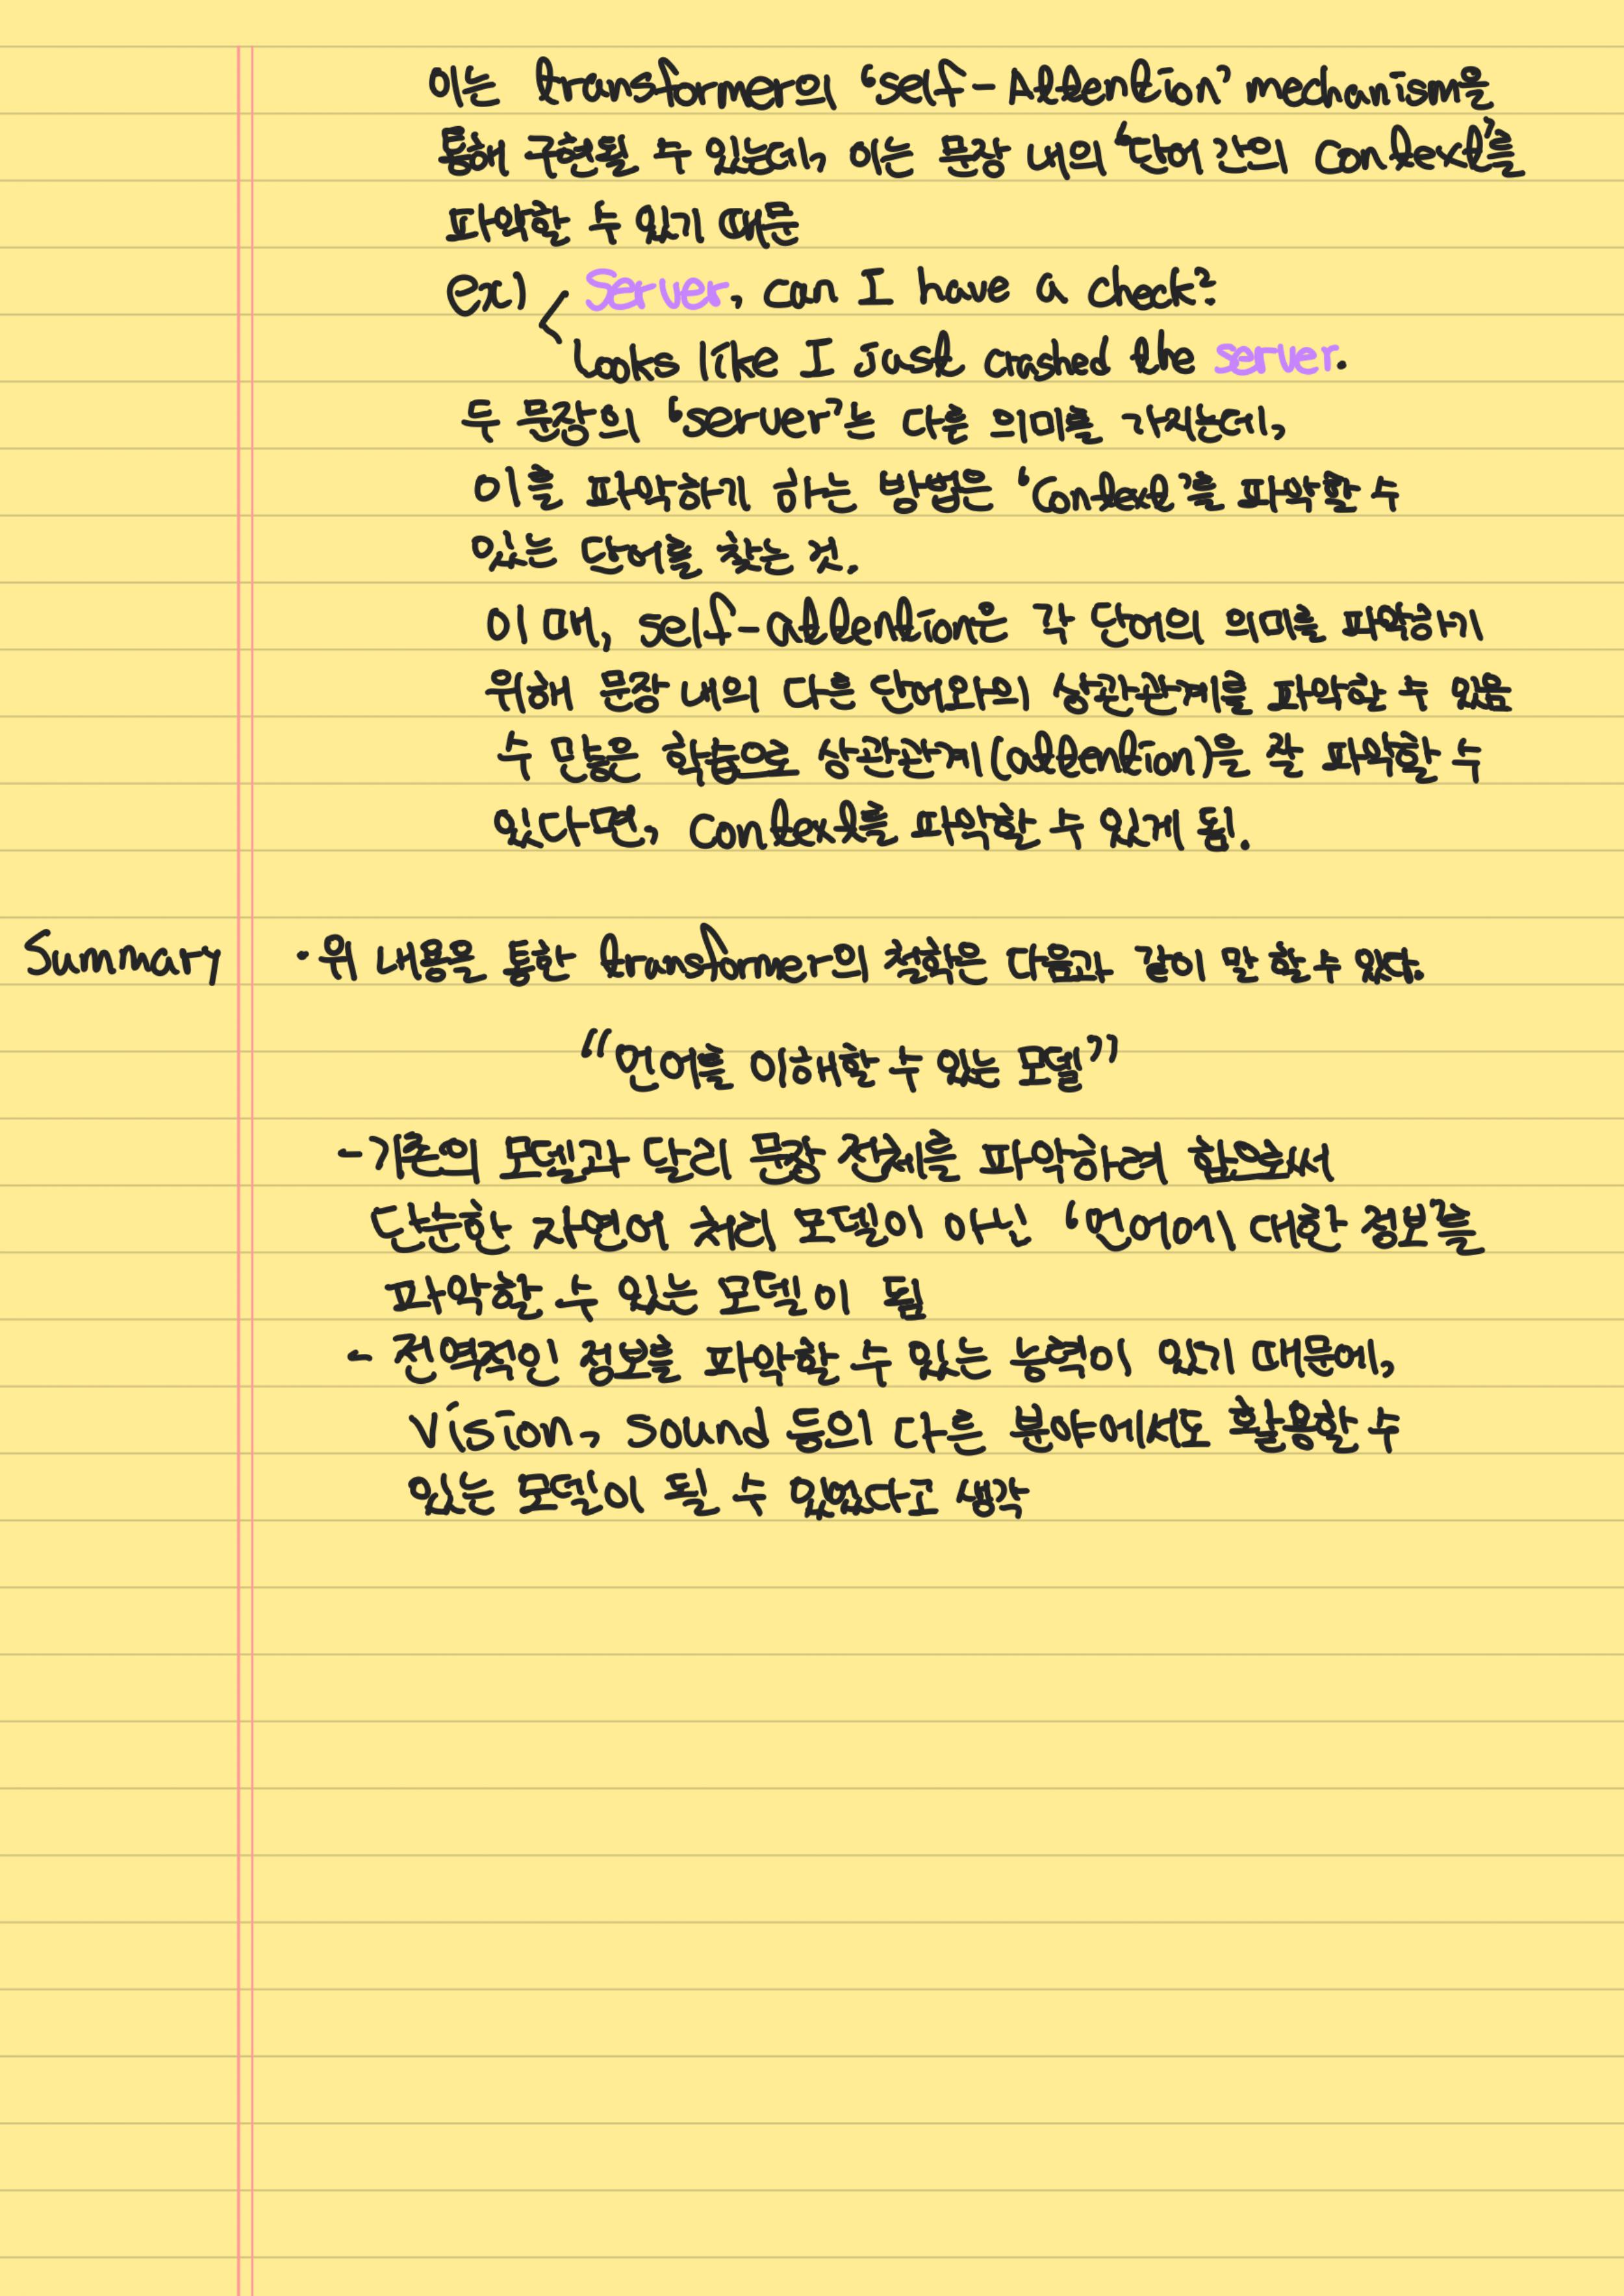 이는 transformer의 'self-Attention' mechanism을
통해 구현될 수 있는데, 이는 문장 내의 '단어 간의 context'를
파악할 수 있기 때문
ex) Server, can I have a check?
Looks like I just crashed the server.
두 문장의 'server'는 다른 의미를 가지는데,
이를 파악하기 하는 방법은 'context'를 파악할 수
있는 단어를 찾는 것.
이 때, self-attention은 각 단어의 의미를 파악하기
위해 문장 내의 다른 단어와의 상관관계를 파악할 수 있음
수 많은 학습으로 상관관계(attention)을 잘 파악할 수
있다면, context를 파악할 수 있게 됨.
Summary · 위 내용을 통한 transformer의 철학은 다음과 같이 말 할 수 있다.
"언어를 이해할 수 있는 모델"
- 기존의 모델과 달리 문장 전체를 파악하려 함으로써
단순한 자연어 처리 모델이 아닌 '언어에 대한 정보'를
파악할 수 있는 모델이 됨
- 전역적인 정보를 파악할 수 있는 능력이 있기 때문에,
Vision, Sound 등의 다른 분야에서도 활용할 수
있는 모델이 될 수 있었다고 생각